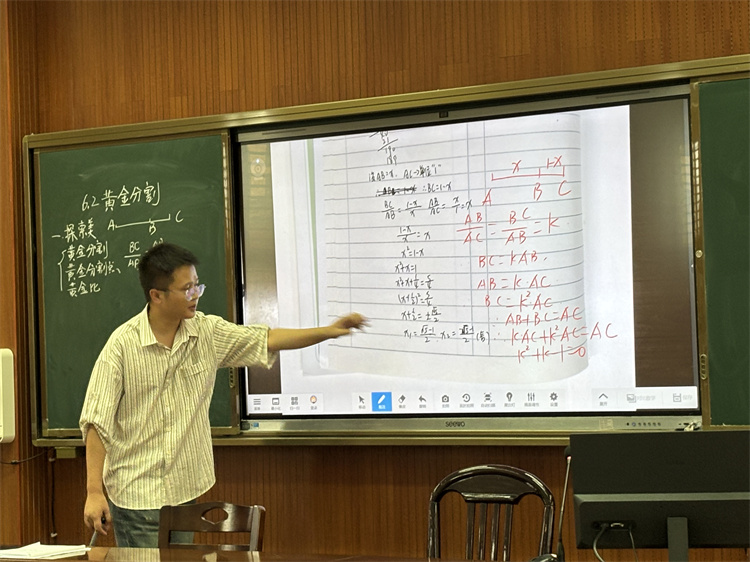 6.2 黄金分割
一 探索美
A B C
黄金分割
BC
黄金分割点、
黄金比
190
189
设AB=x, AC→单位"1"
∴BC=1-x
BC/AB=(1-x)/x AB/AC=x/1=x
(1-x)/x=x
x²=1-x
x²+x=1
x²+x+1/4=5/4
(x+1/2)²=5/4
x+1/2=±√5/2
x 1-x
A B C
AB/AC=BC/AB=K
BC=KAB.
AB=K·AC
BC=K²AC
∴AB+BC=AC
∴KAC+K²AC=AC
K²+K-1=0
seewo